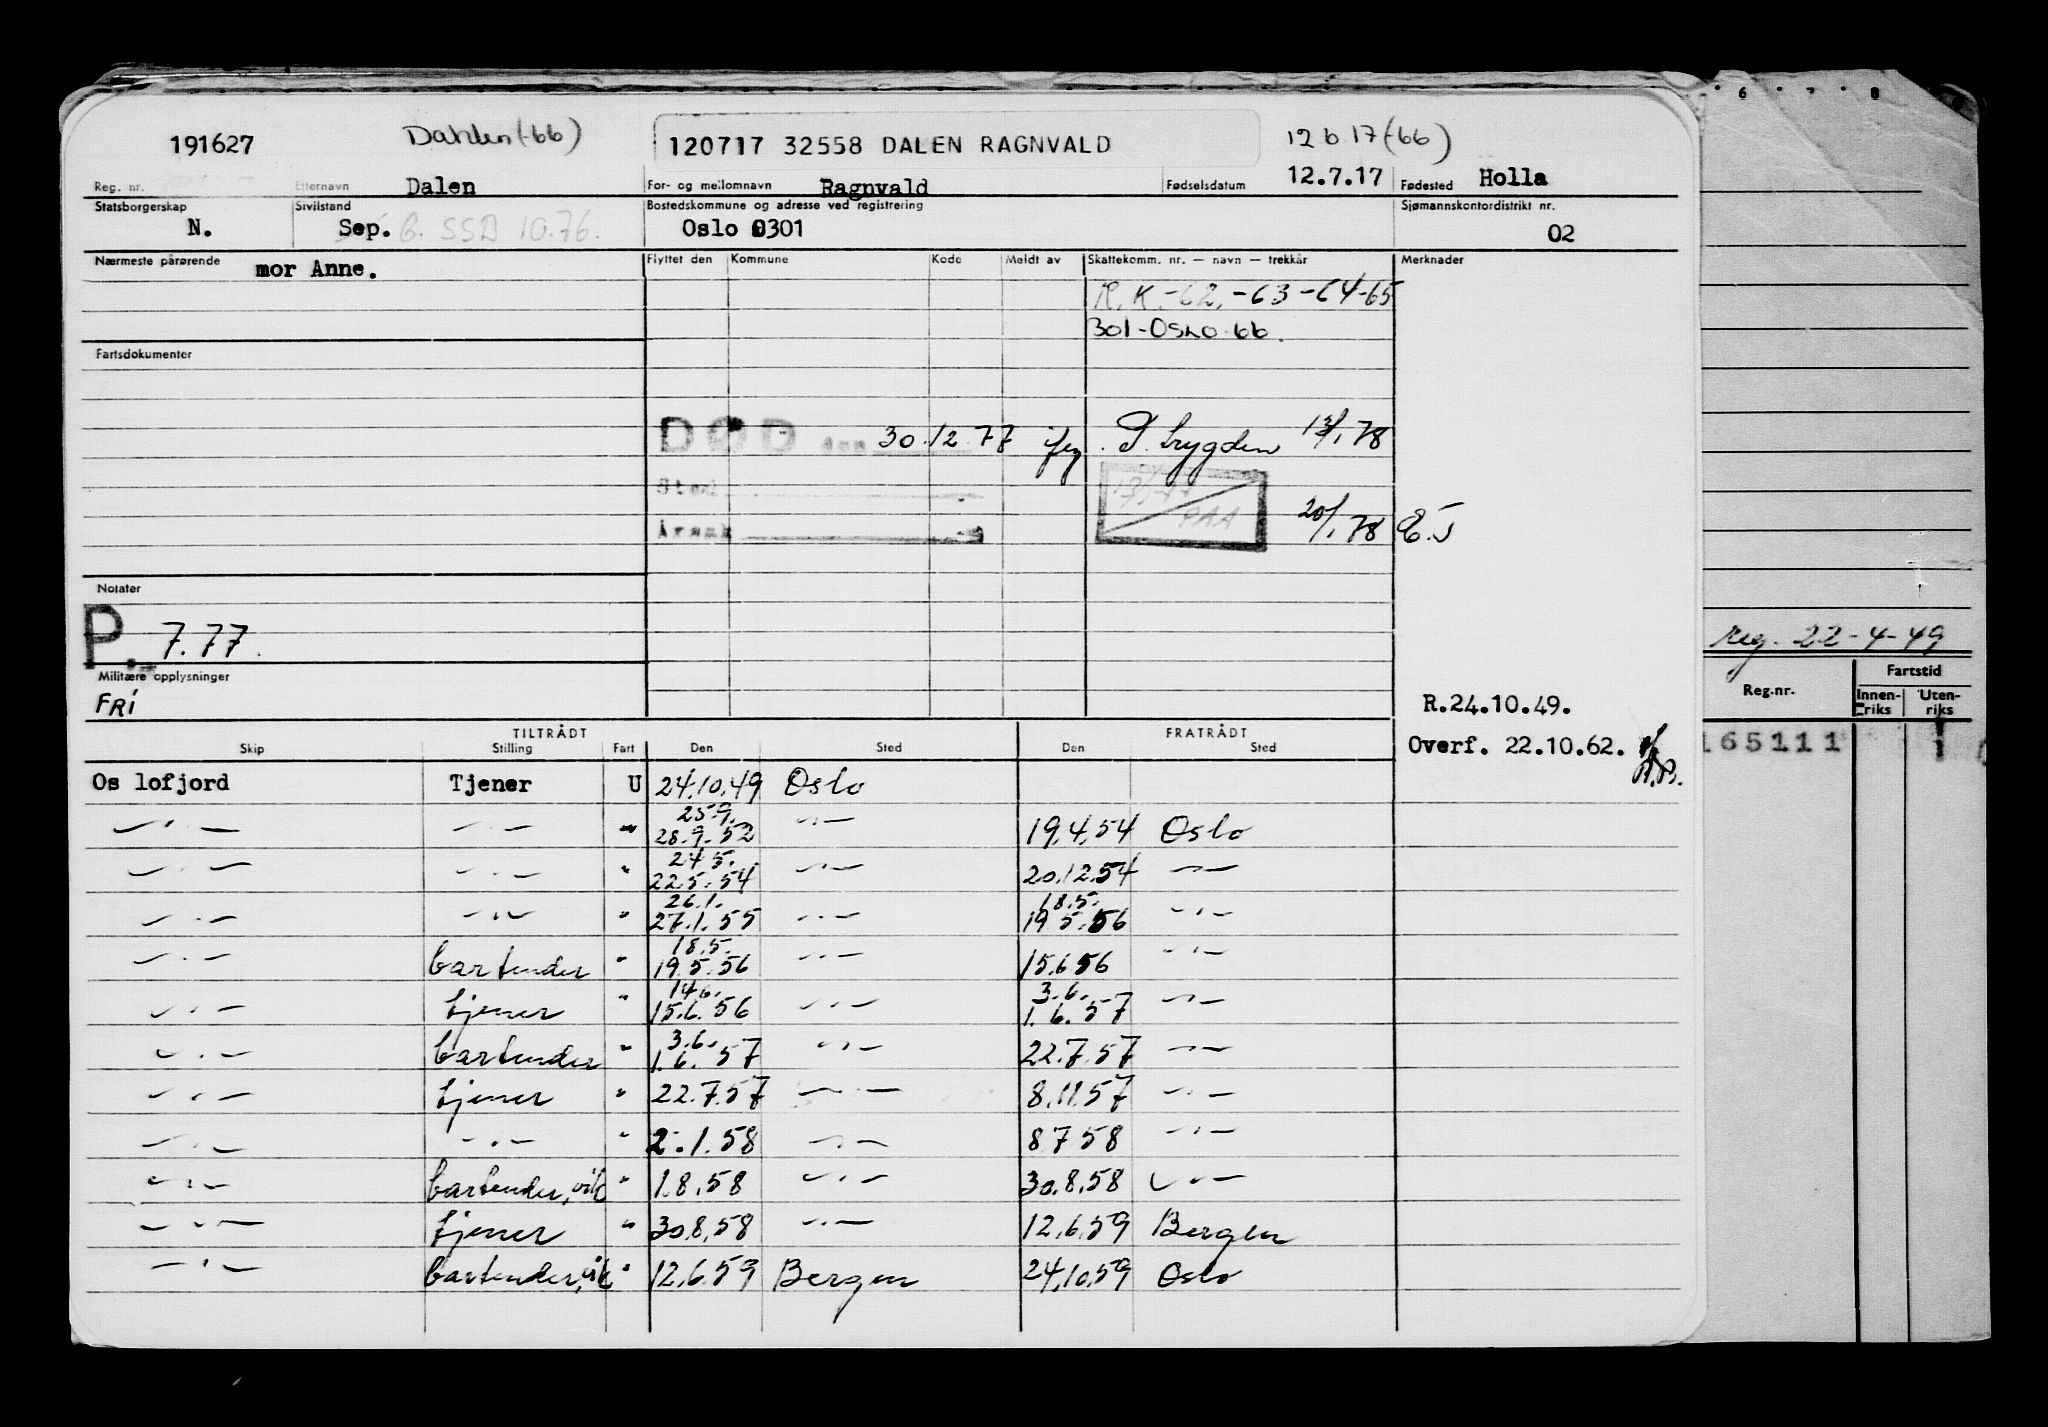 6 7 8
191627 Dahlen (-66) 120717 32558 DALEN RAGNVALD 12 6 17 (-66)
Reg. nr. Etternavn Dalen For- og mellomnavn Ragnvald Fødselsdatum 12.7.17 Fødested Holla
Statsborgerskap Sivilstand Bostedskommune og adresse ved registrering Sjømannskontordistrikt nr.
N. Sep. G. SSB 10.76. Oslo 0301 02
Nærmeste pårørende mor Anne. Flyttet den Kommune Kode Meldt av Skattekomm. nr. — navn — trekkår Merknader
R.K.-62.-63-64-65
301-OSLO-66.
Fartsdokumenter
DØD den 30.12.77 jfg. P. trygden 13/1 78
Sted
PAA 20/1 78 E.J
Årsak
Notater
P. 7.77.
reg. 22-4-49
Militære opplysninger
FRI
R.24.10.49.
Reg.nr. Fartstid
Innenriks Utenriks
TILTRÅDT FRATRÅDT
Skip Stilling Fart Den Sted Den Sted
Overf. 22.10.62.
165111
Os lofjord Tjener U 24.10.49 Oslo
25.9.
—"— —"— " 28.9.52 —"— 19.4.54 Oslo
24.5.
—"— —"— " 22.5.54 —"— 20.12.54 —"—
26.1. 18.5.
—"— —"— " 27.1.55 —"— 19.5.56 —"—
18.5.
—"— bartender " 19.5.56 —"— 15.6.56 —"—
14.6. 3.6.
—"— tjener " 15.6.56 —"— 1.6.57 —"—
3.6.
—"— bartender " 1.6.57 —"— 22.7.57 —"—
—"— tjener " 22.7.57 —"— 8.11.57 —"—
—"— —"— " 2.1.58 —"— 8.7.58 —"—
—"— bartender, vik " 1.8.58 —"— 30.8.58 —"—
—"— tjener " 30.8.58 —"— 12.6.59 Bergen
—"— bartender, vik " 12.6.59 Bergen 24.10.59 Oslo